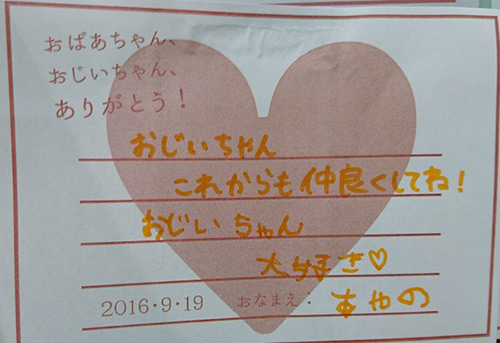 おばあちゃん、
おじいちゃん、
ありがとう!
おじいちゃん
これからも仲良くしてね!
おじいちゃん
大好き♡
2016・9・19 おなまえ: あやの